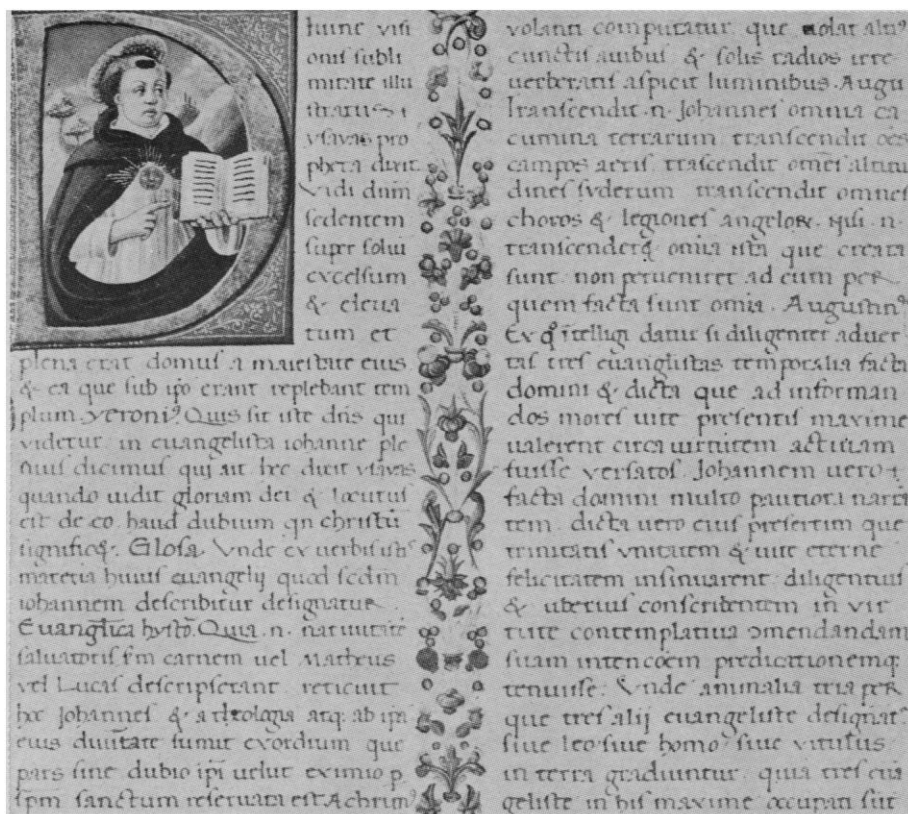 Diuine visi
onis subli
mitate illu
stratus
ysayas pro
pheta dixit
Vidi dnm
sedentem
super soliu
excelsum
& eleua
tum et
plena erat domus a maiestate eius
& ea que sub ipo erant replebant tem
plum. yeroniꝰ. Quis sit iste dns qui
videtur in euangelista iohanne ple
nius dicimus qui ait hec dixit ysayas
quando uidit gloriam dei & locutus
est de eo. haud dubium qn christū
significꝫ. Glosa. Vnde ex uerbis istis
materia huius euangelij quod scdm
iohannem describitur designatur.
Euanglica hysto. Quia .n. natiuitatē
saluatoris sm carnem uel Matheus
vel Lucas descripserant reticuit
hec Johannes & a theologia atq; ab ipa
eius diuitate sumit exordium que
pars sine dubio ipi uelut eximio p
spm sanctum reseruata est. Alchuinꝰ
volanti computatur. que uolat altiꝰ
cunctis auibus & solis radios irre
uerberatis aspicit luminibus. Augu
Transcendit .n. Johannes omnia ca
cumina terrarum transcendit oēs
campos aeris trascendit omēs altitu
dines syderum transcendit omnes
choros & legiones angeloꝝ. Nisi .n.
transcenderꝫ omīa ista que creata
sunt non perueniret ad eum per
quem facta sunt omīa. Augustinꝰ
Ex qͦ ītelligi datur si diligenter aduer
tas tres euanglistas temporalia facta
domini & dicta que ad informan
dos mores uite presentis maxime
ualerent circa uirtutem actiuam
fuisse versatos. Johannem uero
facta domini multo pautiora narrā
tem. dicta uero eius presertim que
trinitatis vnitatem & uite eterne
felicitatem insinuarent diligentius
& uberius conscribentem in vir
tute contemplatiua ↄmendandam
suam intencōem predicationemq;
tenuisse. Vnde animalia tria per
que tres alij euangeliste designatꝰ
siue leo siue homo siue vitulus
in terra gradiuntur. quia tres euā
geliste in his maxime occupati sūt